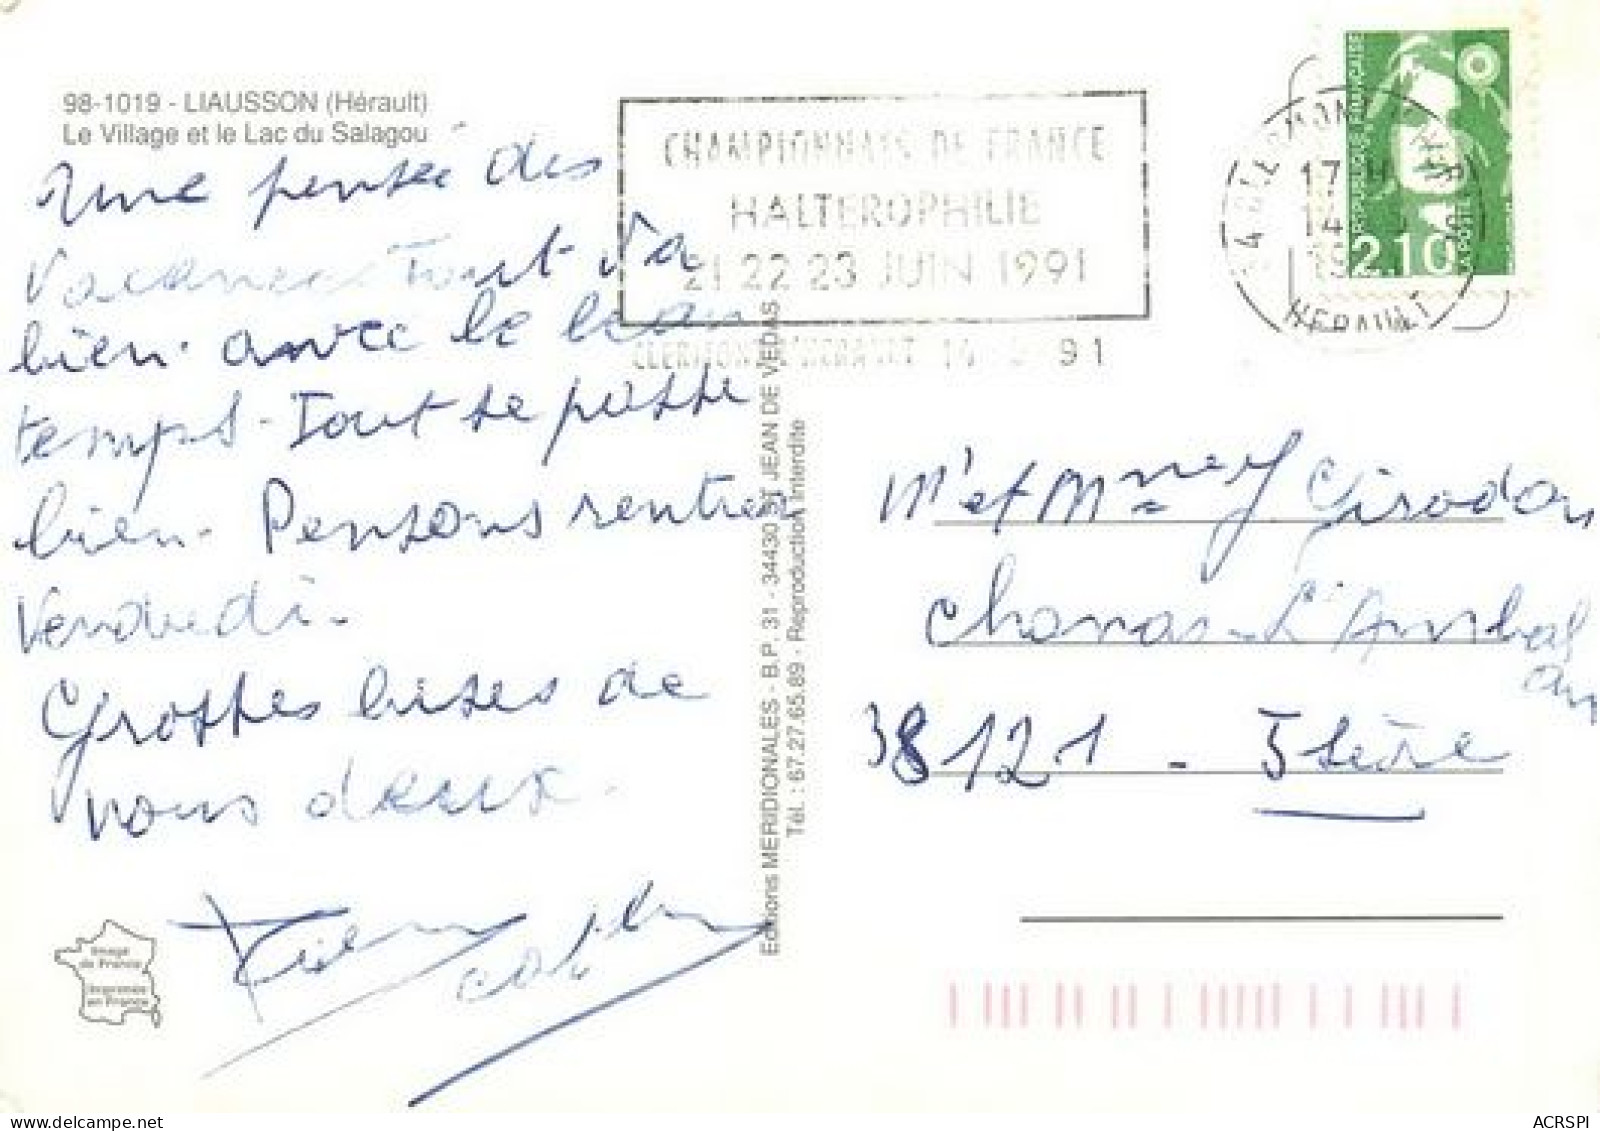 98-1019 - LIAUSSON (Hérault)
Le Village et le Lac du Salagou
Une pensée des
Vacances Tout Va
bien. avec le beau
temps - Tout se passe
bien. Pensons rentrer
Vendredi.
Grosses bises de
nous deux.
Image
de France
Imprimée
en France
Editions MERIDIONALES - B.P. 31 - 34430 ST JEAN DE VEDAS
Tél. : 67.27.65.89 - Reproduction Interdite
CHAMPIONNATS DE FRANCE
HALTEROPHILIE
21 22 23 JUIN 1991
CLERMONT L'HERAULT 14 91
17 H
14
19
HERAULT
REPUBLIQUE FRANÇAISE
2,10
LA POSTE
Mr et Mme Girodon
Chonas-L'Ambal
an
38121 - Isère
ACRSPI